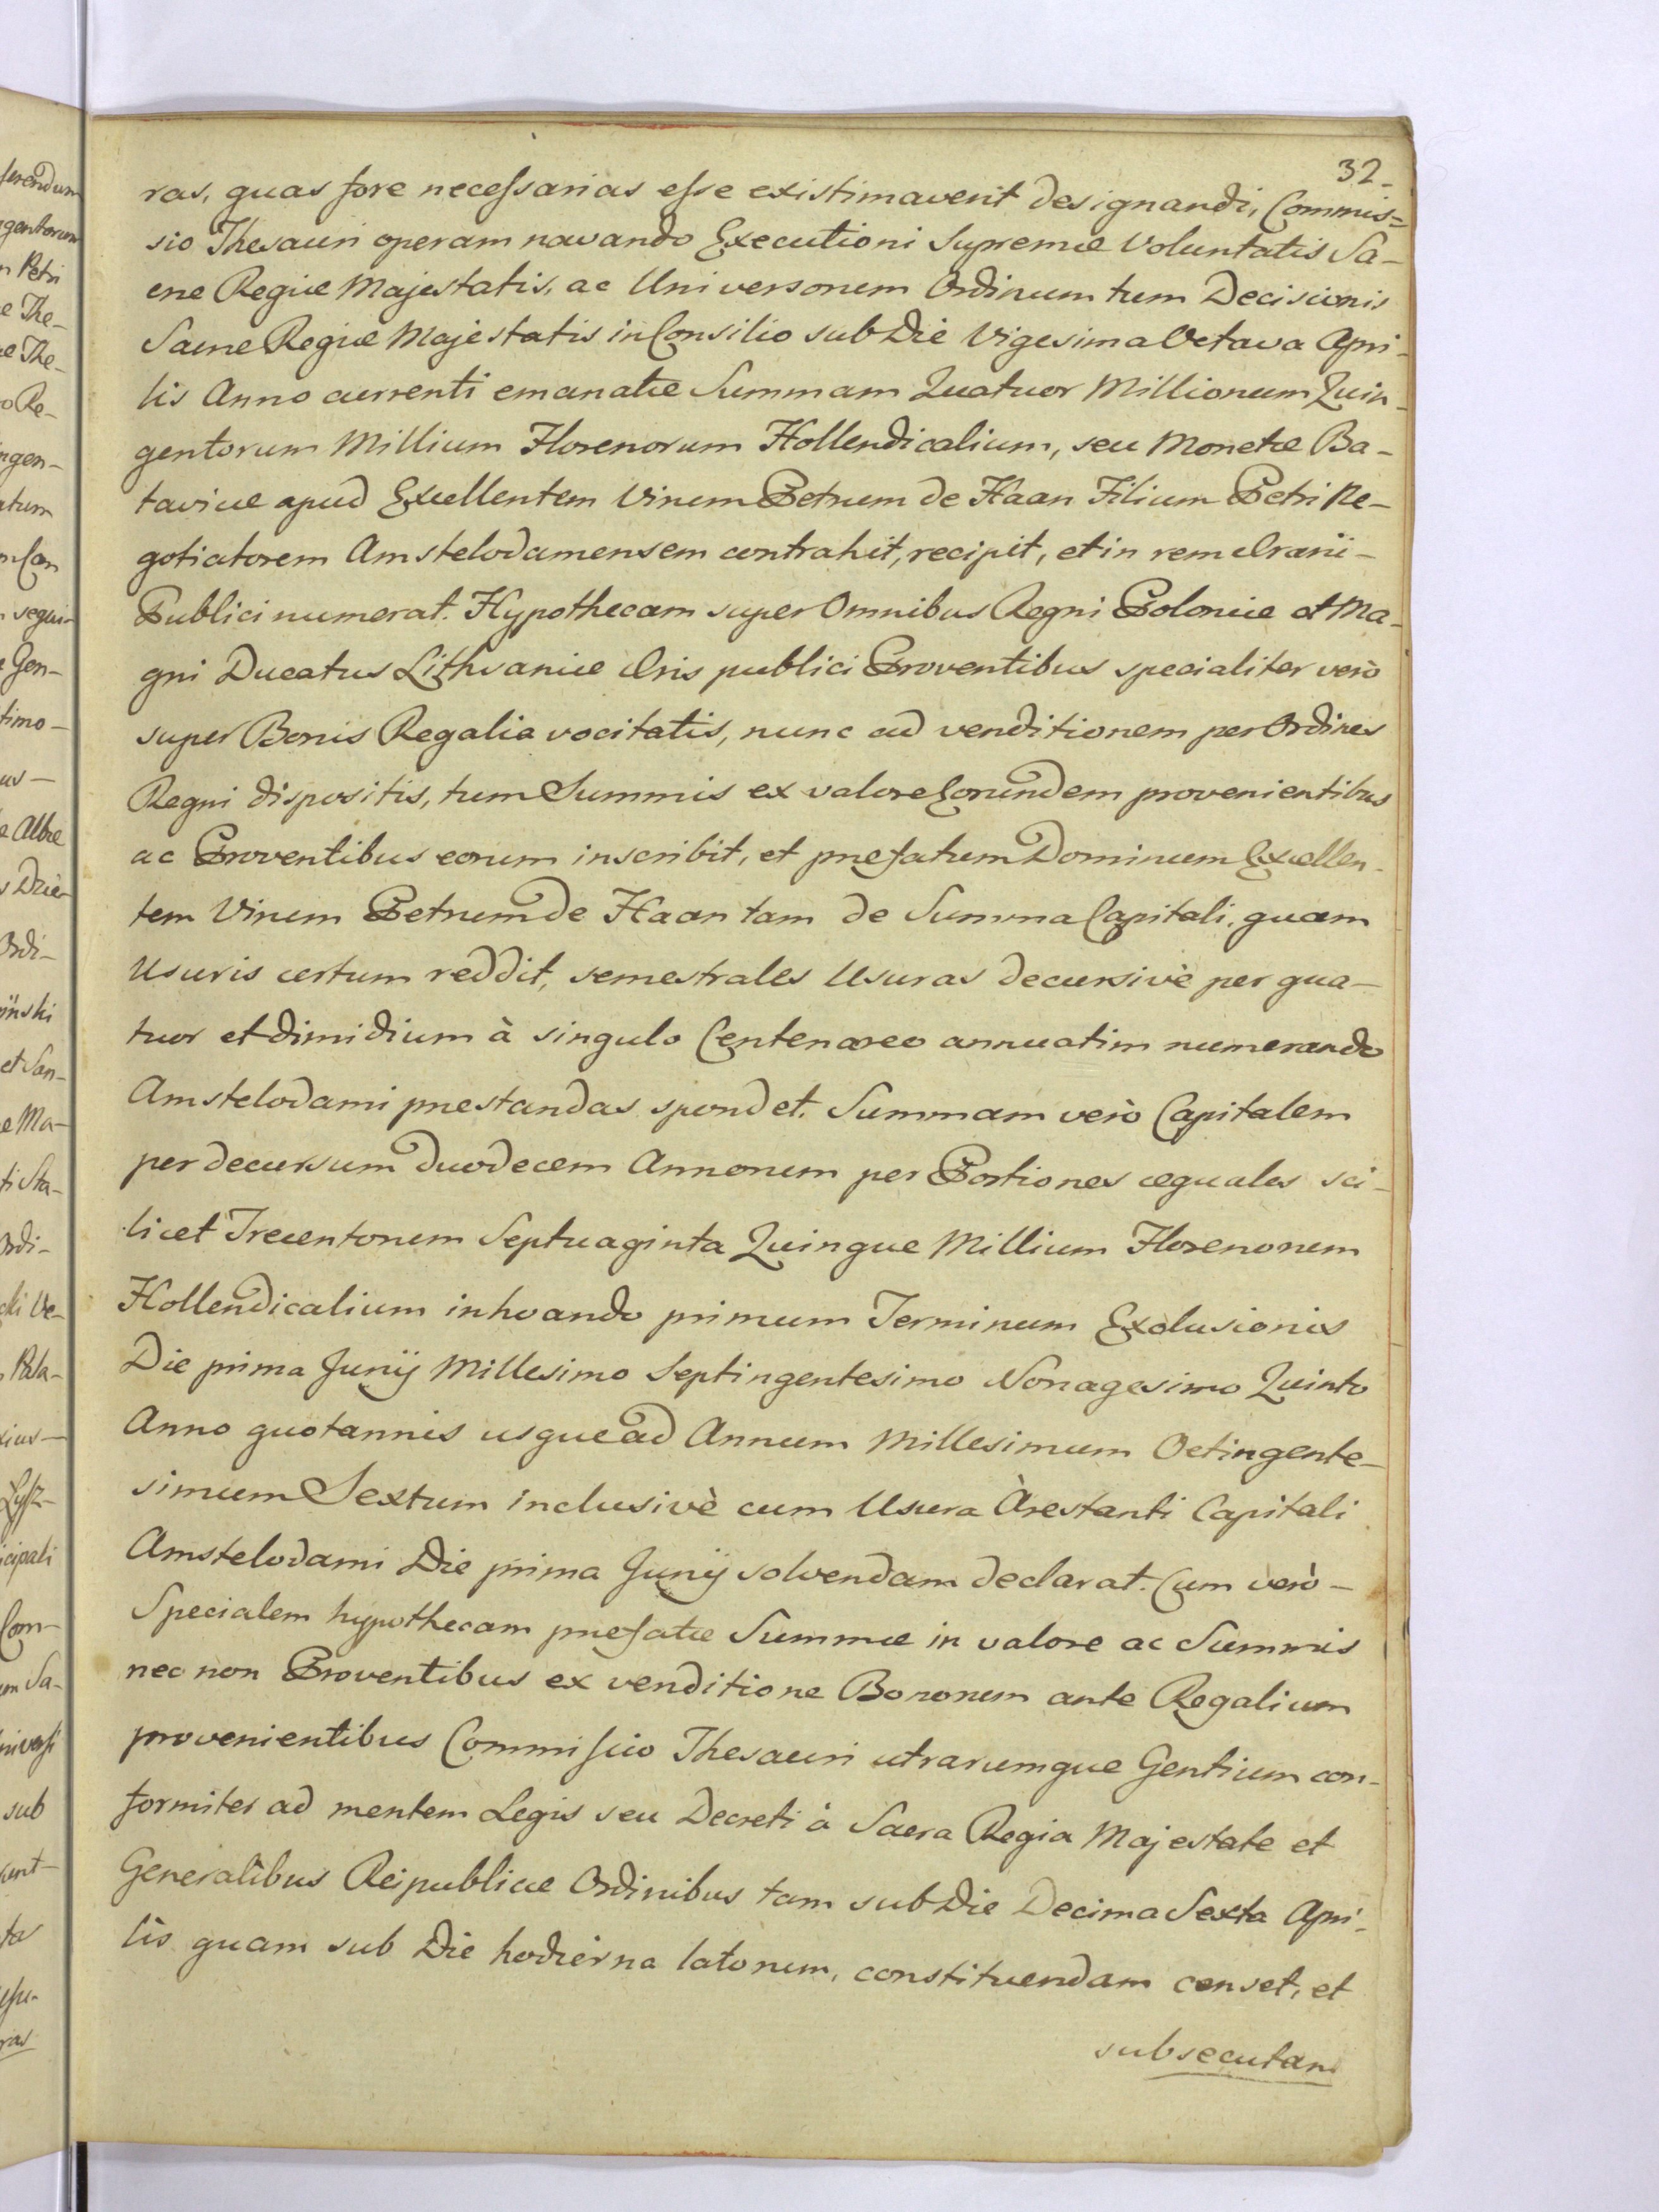 32.
ras, quas fore necessarias esse existimaverit designandi, Commis=
sio Thesauri operam navando Executioni Supremæ Voluntatis Sa-
cræ Regiæ Majestatis, ac Universorum Ordinum tum Decisionis
Sacræ Regiæ Majestatis in Consilio sub Die Vigesima Octava Apri-
lis Anno currenti emanatæ Summam Quatuor Millionum Quin-
gentorum Millium Florenorum Hollendicalium, seu Monetæ Ba-
taviæ apud Excellentem Virum Petrum de Haan Filium Petri Ne-
gotiatorem Amstelodamensem contrahit, recipit, et in rem Ærarii-
Publici numerat. Hypothecam super Omnibus Regni Poloniæ et Ma-
gni Ducatus Lithvaniæ Æris publici Proventibus specialiter verò
super Bonis Regalia vocitatis, nunc ad venditionem per Ordines
Regni dispositis, tum Summis ex valore Eorundem provenientibus
ac Proventibus eorum inscribit, et præfatum Dominum Excellen-
tem Virum Petrum de Haan tam de Summa Capitali, quam
Usuris certum reddit, semestrales Usuras decursivè per qua-
tuor et dimidium à singulo Centenareo annuatim numerando
Amstelodami præstandas spondet. Summam verò Capitalem
per decursum duodecem Annorum per Portiones æquales sci-
licet Trecentorum Septuaginta Quinque Millium Florenorum
Hollendicalium inhoando primum Terminum Exolusionis
Die prima Junij Millesimo Septingentesimo Nonagesimo Quinto
Anno quotannis usque ad Annum Millesimum Octingente-
simum Sextum inclusivè cum Usura À restanti Capitali
Amstelodami Die prima Junij solvendam declarat. Cum verò-
Specialem hypothecam præfatæ Summæ in valore ac Summis
nec non Proventibus ex venditione Bonorum ante Regalium
provenientibus Commissio Thesauri utrarumque Gentium con-
formiter ad mentem Legis seu Decreti à Sacra Regia Majestate et
Generalibus Reipublicæ Ordinibus tam sub Die Decima Sexta Apri-
lis quam sub Die hodierna latorum, constituendam censet, et
subsecutam